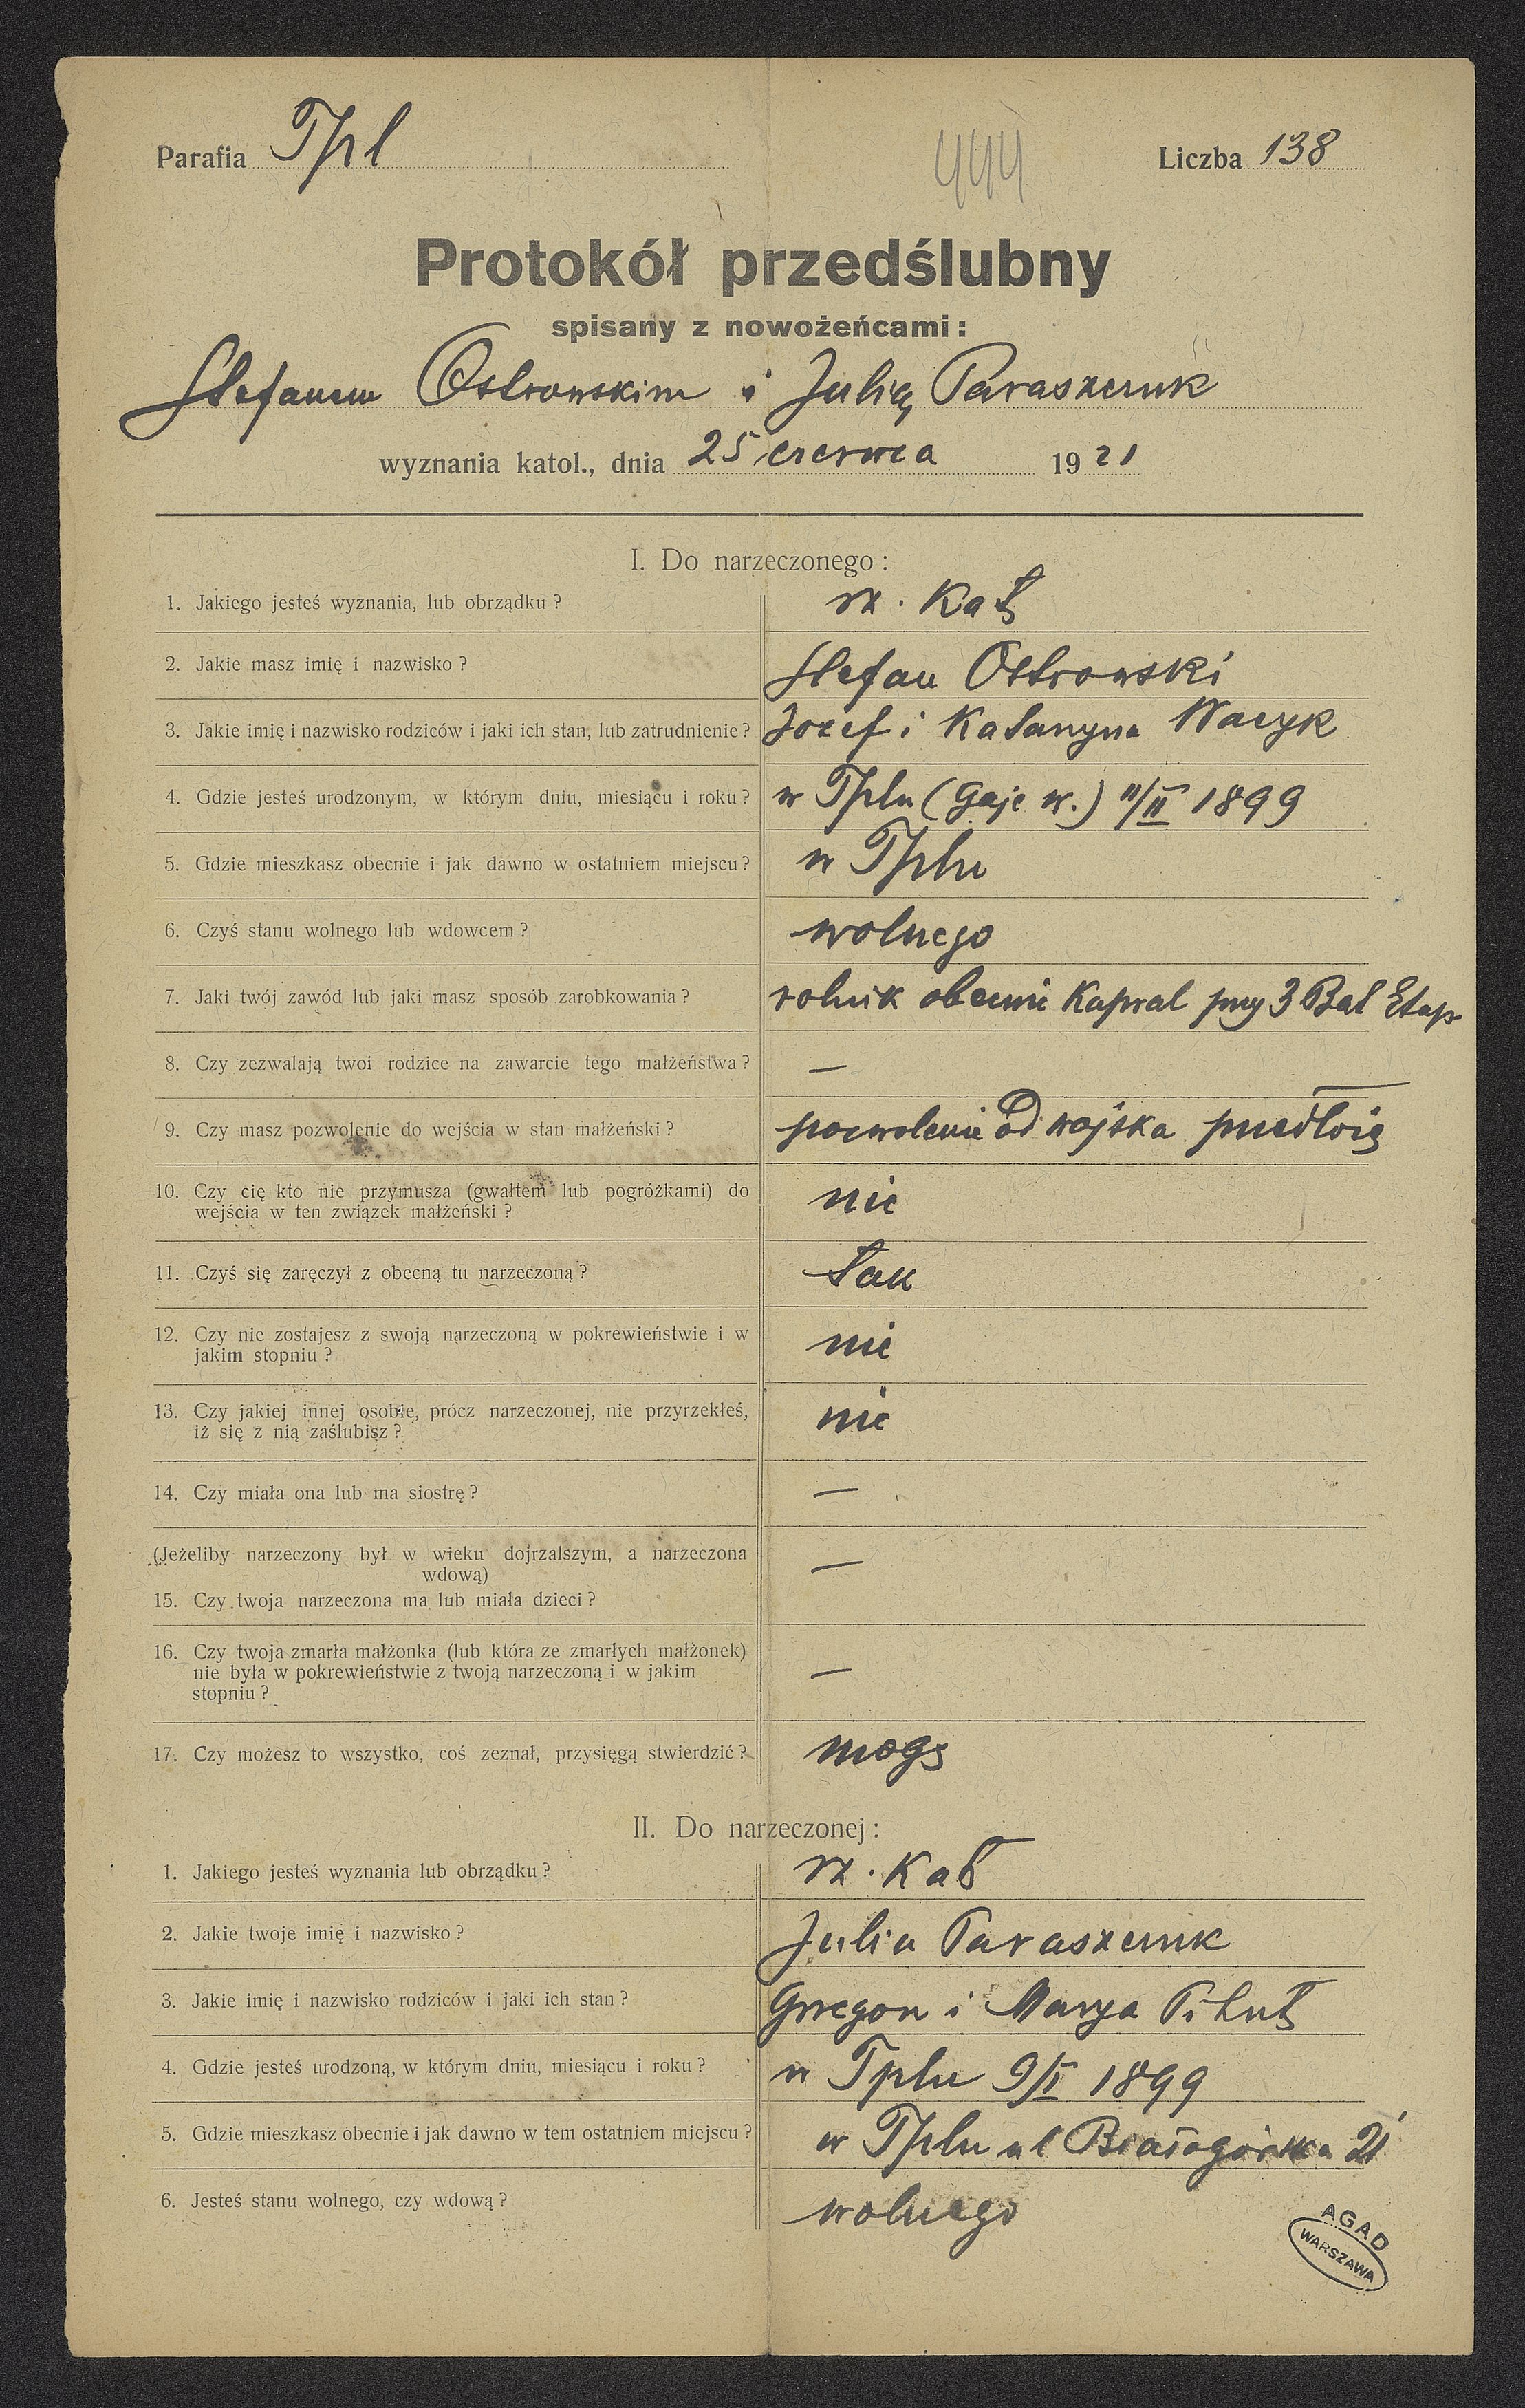 Parafia Tpl 444 Liczba 138
Protokół przedślubny
spisany z nowożeńcami:
Stefanem Ostrowskim i Julią Paraszczuk
wyznania katol., dnia 25 czerwca 1921
I. Do narzeczonego:
1. Jakiego jesteś wyznania, lub obrządku? rz. kat
2. Jakie masz imię i nazwisko? Stefan Ostrowski
3. Jakie imię i nazwisko rodziców i jaki ich stan, lub zatrudnienie? Jozef i Katarzyna Wacyk
4. Gdzie jesteś urodzonym, w którym dniu, miesiącu i roku? w Tplu (Gaje w.) 11/II 1899
5. Gdzie mieszkasz obecnie i jak dawno w ostatniem miejscu? w Tplu
6. Czyś stanu wolnego lub wdowcem? wolnego
7. Jaki twój zawód lub jaki masz sposób zarobkowania? rolnik obecnie kapral przy 3 Bat Etap
8. Czy zezwalają twoi rodzice na zawarcie tego małżeństwa? —
9. Czy masz pozwolenie do wejścia w stan małżeński? pozwolenie od wojska przedłożę
10. Czy cię kto nie przymusza (gwałtem lub pogróżkami) do
wejścia w ten związek małżeński? nie
11. Czyś się zaręczył z obecną tu narzeczoną? tak
12. Czy nie zostajesz z swoją narzeczoną w pokrewieństwie i w
jakim stopniu? nie
13. Czy jakiej innej osobie, prócz narzeczonej, nie przyrzekłeś,
iż się z nią zaślubisz? nie
14. Czy miała ona lub ma siostrę? —
(Jeżeliby narzeczony był w wieku dojrzalszym, a narzeczona
wdową) —
15. Czy twoja narzeczona ma lub miała dzieci?
16. Czy twoja zmarła małżonka (lub która ze zmarłych małżonek)
nie była w pokrewieństwie z twoją narzeczoną i w jakim
stopniu? —
17. Czy możesz to wszystko, coś zeznał, przysięgą stwierdzić? mogę
II. Do narzeczonej:
1. Jakiego jesteś wyznania lub obrządku? rz. kat
2. Jakie twoje imię i nazwisko? Julia Paraszczuk
3. Jakie imię i nazwisko rodziców i jaki ich stan? Grzegorz i Marya
4. Gdzie jesteś urodzoną, w którym dniu, miesiącu i roku? w Tplu 9/I 1899
5. Gdzie mieszkasz obecnie i jak dawno w tem ostatniem miejscu? w Tplu ul Białogórska 21
6. Jesteś stanu wolnego, czy wdową? wolnego
AGAD
WARSZAWA